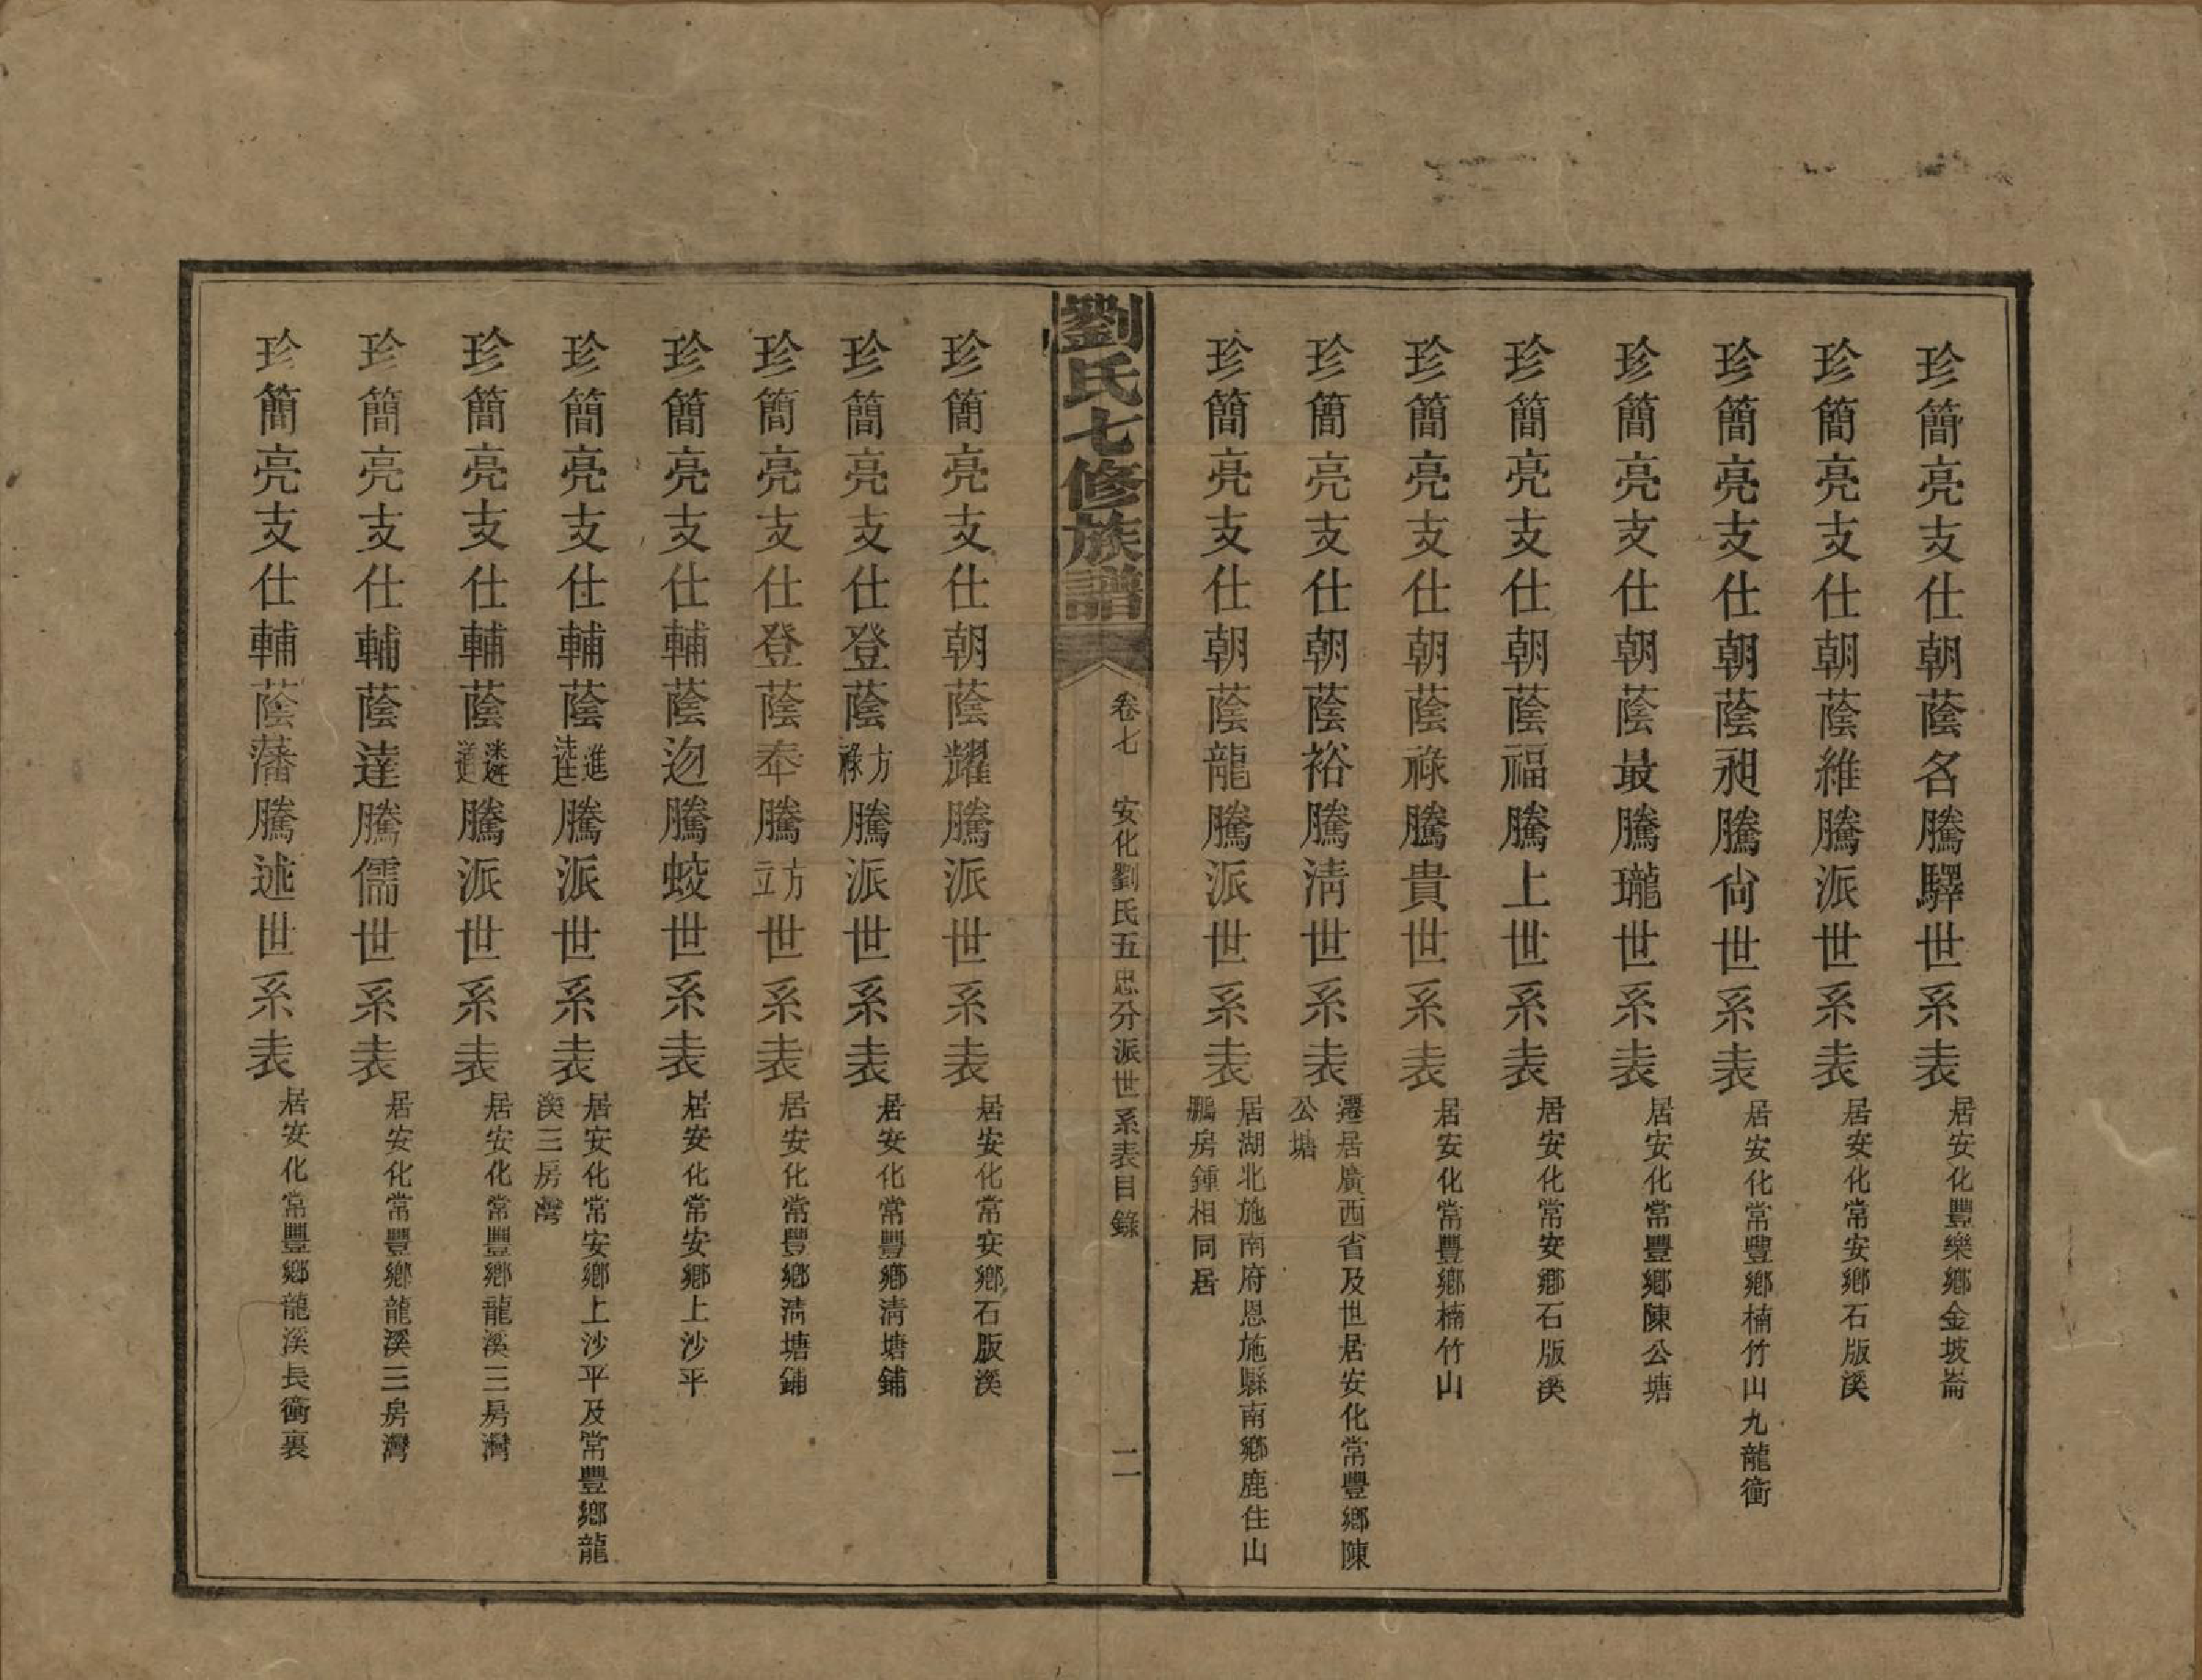 珍簡亮支仕朝蔭名騰驛世系表居安化豐樂鄉金坡崙
珍簡亮支仕朝蔭維騰派世系表居安化常安鄉石版溪
珍簡亮支仕朝蔭昶騰尙世系表居安化常豐鄉楠竹山九龍衝
珍簡亮支仕朝蔭最騰瓏世系表居安化常豐鄉陳公塘
珍簡亮支仕朝蔭福騰上世系表居安化常安鄉石版溪
珍簡亮支仕朝蔭祿騰貴世系表居安化常豐鄉楠竹山
珍簡亮支仕朝蔭裕騰淸世系表遷居廣西省及世居安化常豐鄉陳
公塘
珍簡亮支仕朝蔭龍騰派世系表居湖北施南府恩施縣南鄉鹿住山
鵬房鍾相同居
劉氏七修族譜
卷七 安化劉氏五忠分派世系表目錄 二
珍簡亮支仕朝蔭耀騰派世系表居安化常安鄉石版溪
珍簡亮支仕登蔭方祿騰派世系表居安化常豐鄉淸塘鋪
珍簡亮支仕登蔭奉騰方立世系表居安化常豐鄉淸塘鋪
珍簡亮支仕輔蔭迩騰蛟世系表居安化常安鄉上沙平
珍簡亮支仕輔蔭進騰派世系表居安化常安鄉上沙平及常豐鄉龍
溪三房灣
珍簡亮支仕輔蔭騰派世系表居安化常豐鄉龍溪三房灣
珍簡亮支仕輔蔭達騰儒世系表居安化常豐鄉龍溪三房灣
珍簡亮支仕輔蔭藩騰述世系表居安化常豐鄉龍溪長衝裏